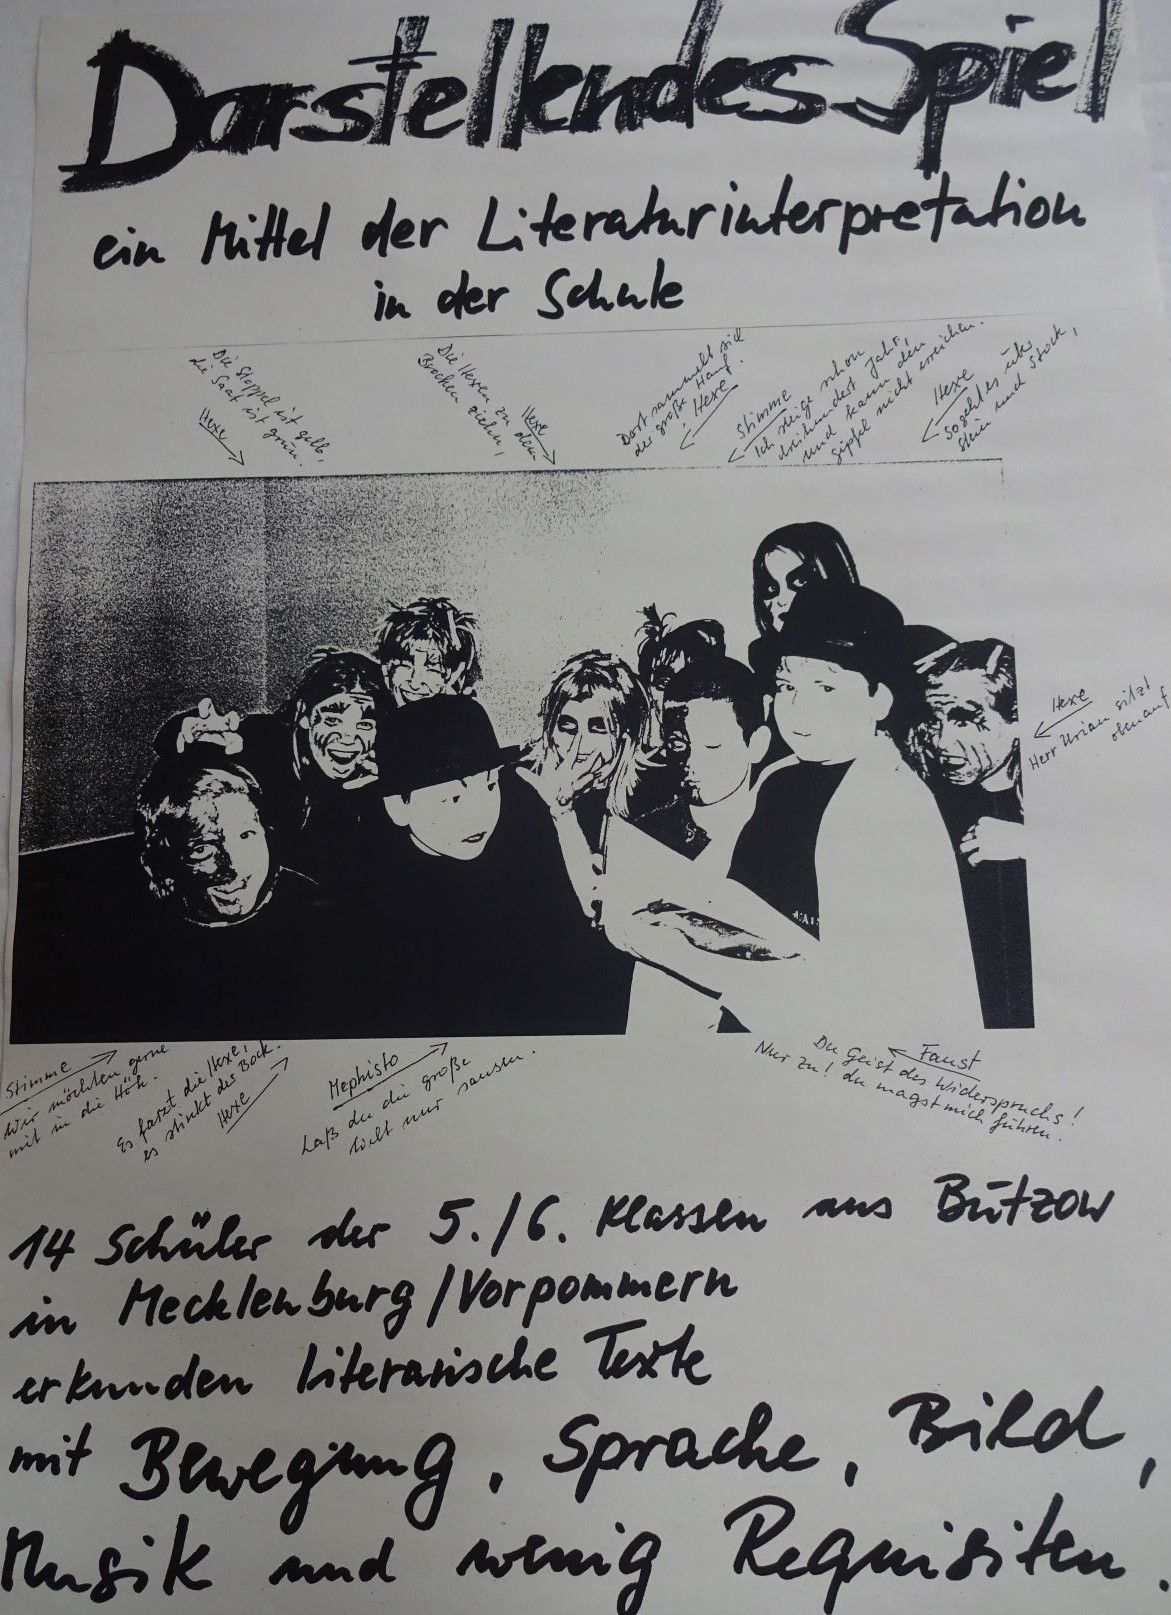 Darstellendes Spiel
ein Mittel der Literaturinterpretation
in der Schule
Die Stoppel ist gelb,
die Saat ist grün.
Hexe
Die Hexen zu dem
Brocken ziehn,
Hexe
Dort sammelt sich
der große Hauf.
Hexe
Stimme
Ich steige schon
dreihundert Jahr,
und kann den
Gipfel nicht erreichen.
Hexe
So geht es über
Stein und Stock,
Hexe
Herr Urian sitzt
obenauf
Stimme
Wir möchten gerne
mit in die Höh.
Es farzt die Hexe,
es stinkt der Bock.
Hexe
Mephisto
Laß du die große
Welt nur sausen.
Faust
Du Geist des Widerspruchs!
Nur zu! du magst mich führen.
14 Schüler der 5./6. Klassen aus Bützow
in Mecklenburg/Vorpommern
erkunden literarische Texte
mit Bewegung, Sprache, Bild,
Musik und wenig Requisiten.